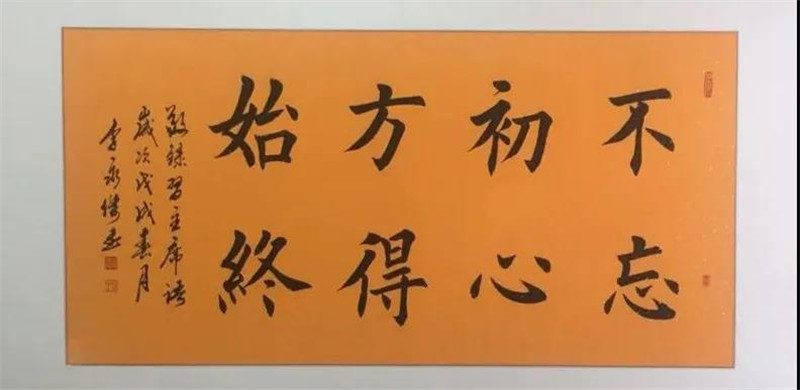 不忘
初心
方得
始終
敬錄習主席語
歲次戊戌春月
李永